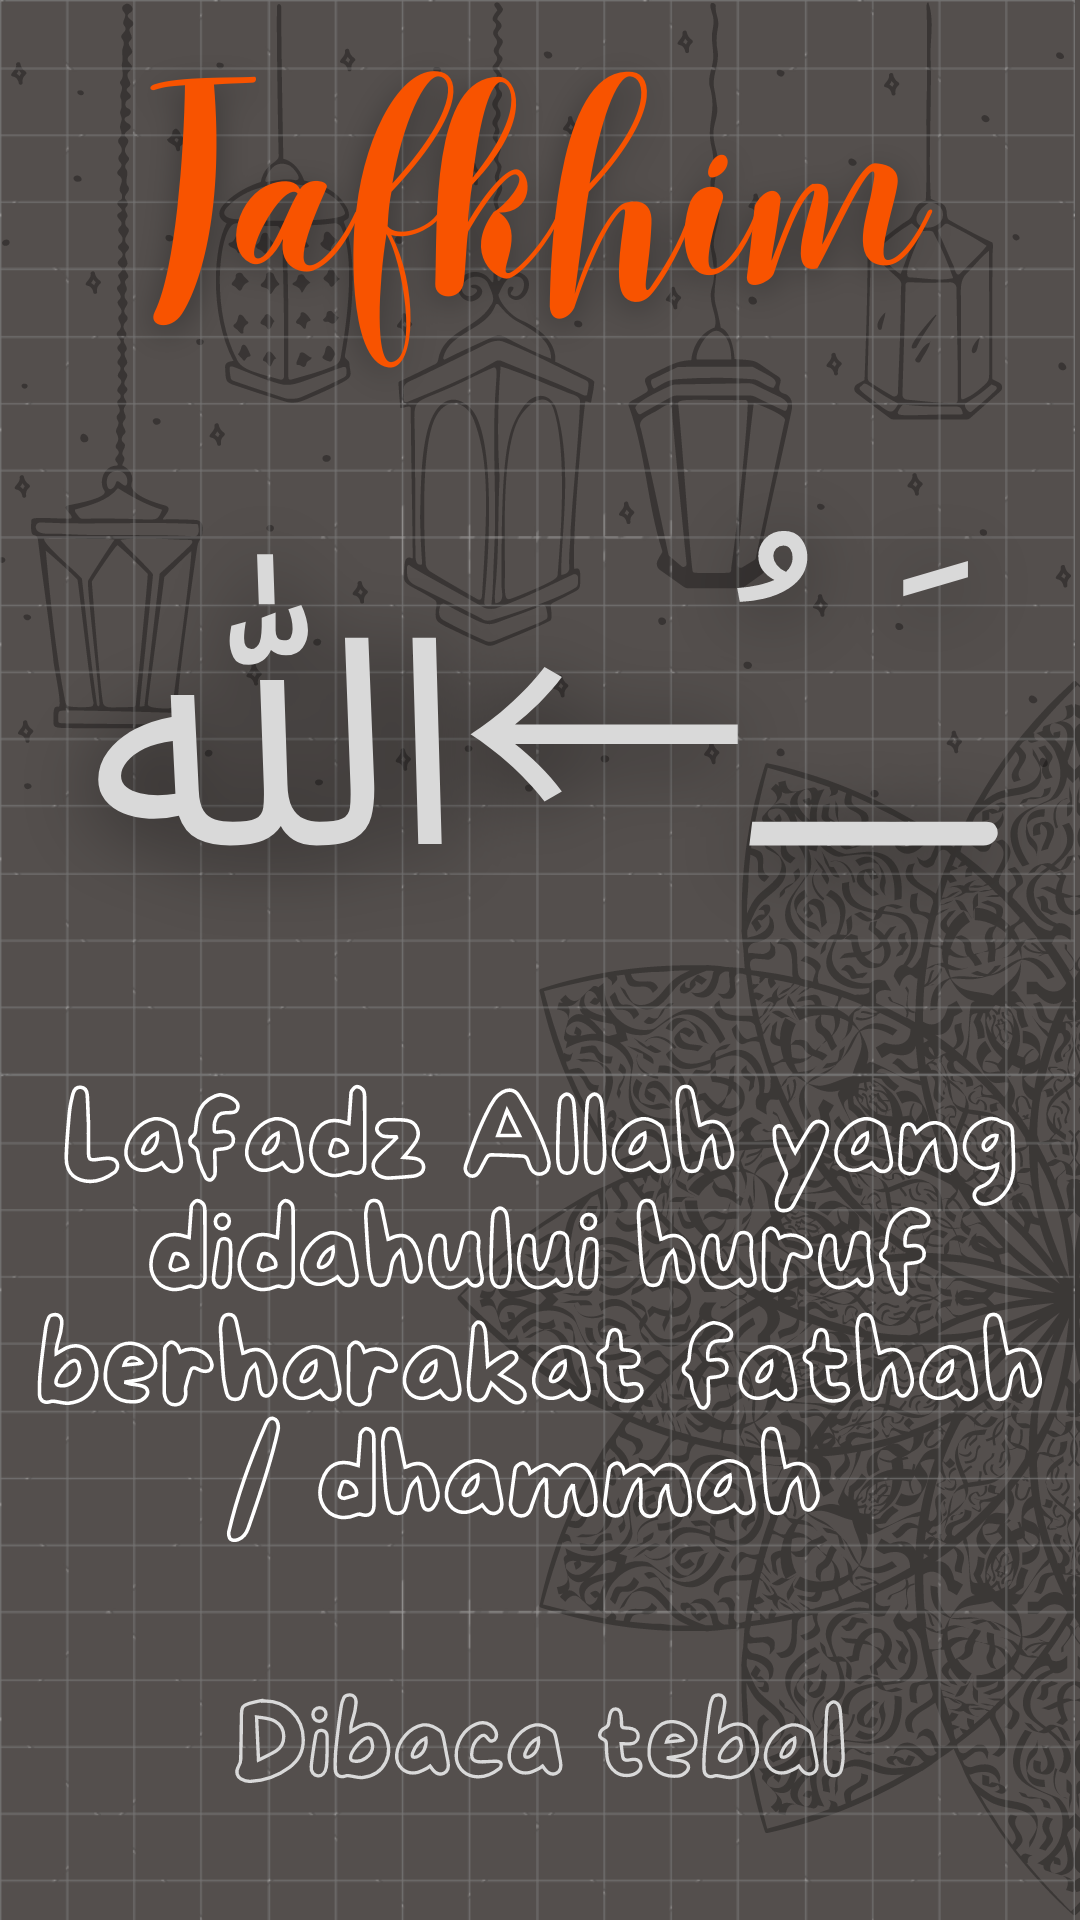 Tafkhim
ـَ ـُ ← الله
Lafadz Allah yang
didahului huruf
berharakat fathah
/ dhammah
Dibaca tebal